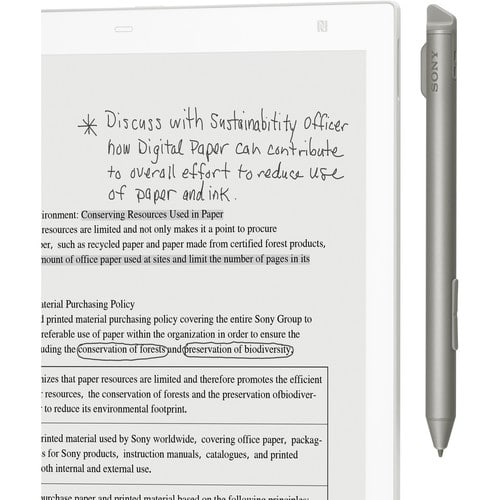 * Discuss with Sustainability Officer
how Digital Paper can contribute
to overall effort to reduce use
of paper and ink.
ironment: Conserving Resources Used in Paper
resources are limited and not only makes it a point to procure
per, such as recycled paper and paper made from certified forest products,
mount of office paper used at sites and limit the number of pages in its
aterial Purchasing Policy
d printed material purchasing policy covering the entire Sony Group to
referable use of paper within the organization in order to ensure the
uding the conservation of forests and preservation of biodiversity.
nizes that paper resources are limited and therefore promotes the efficient
r resources, the conservation of forests and the preservation ofbiodiver-
r to reduce its environmental footprint.
rinted material used by Sony worldwide, covering office paper, packag-
s for Sony products, instruction manuals, catalogues, and printed
oth internal and external use.
purchase paper and printed material based on the following principles:
SONY